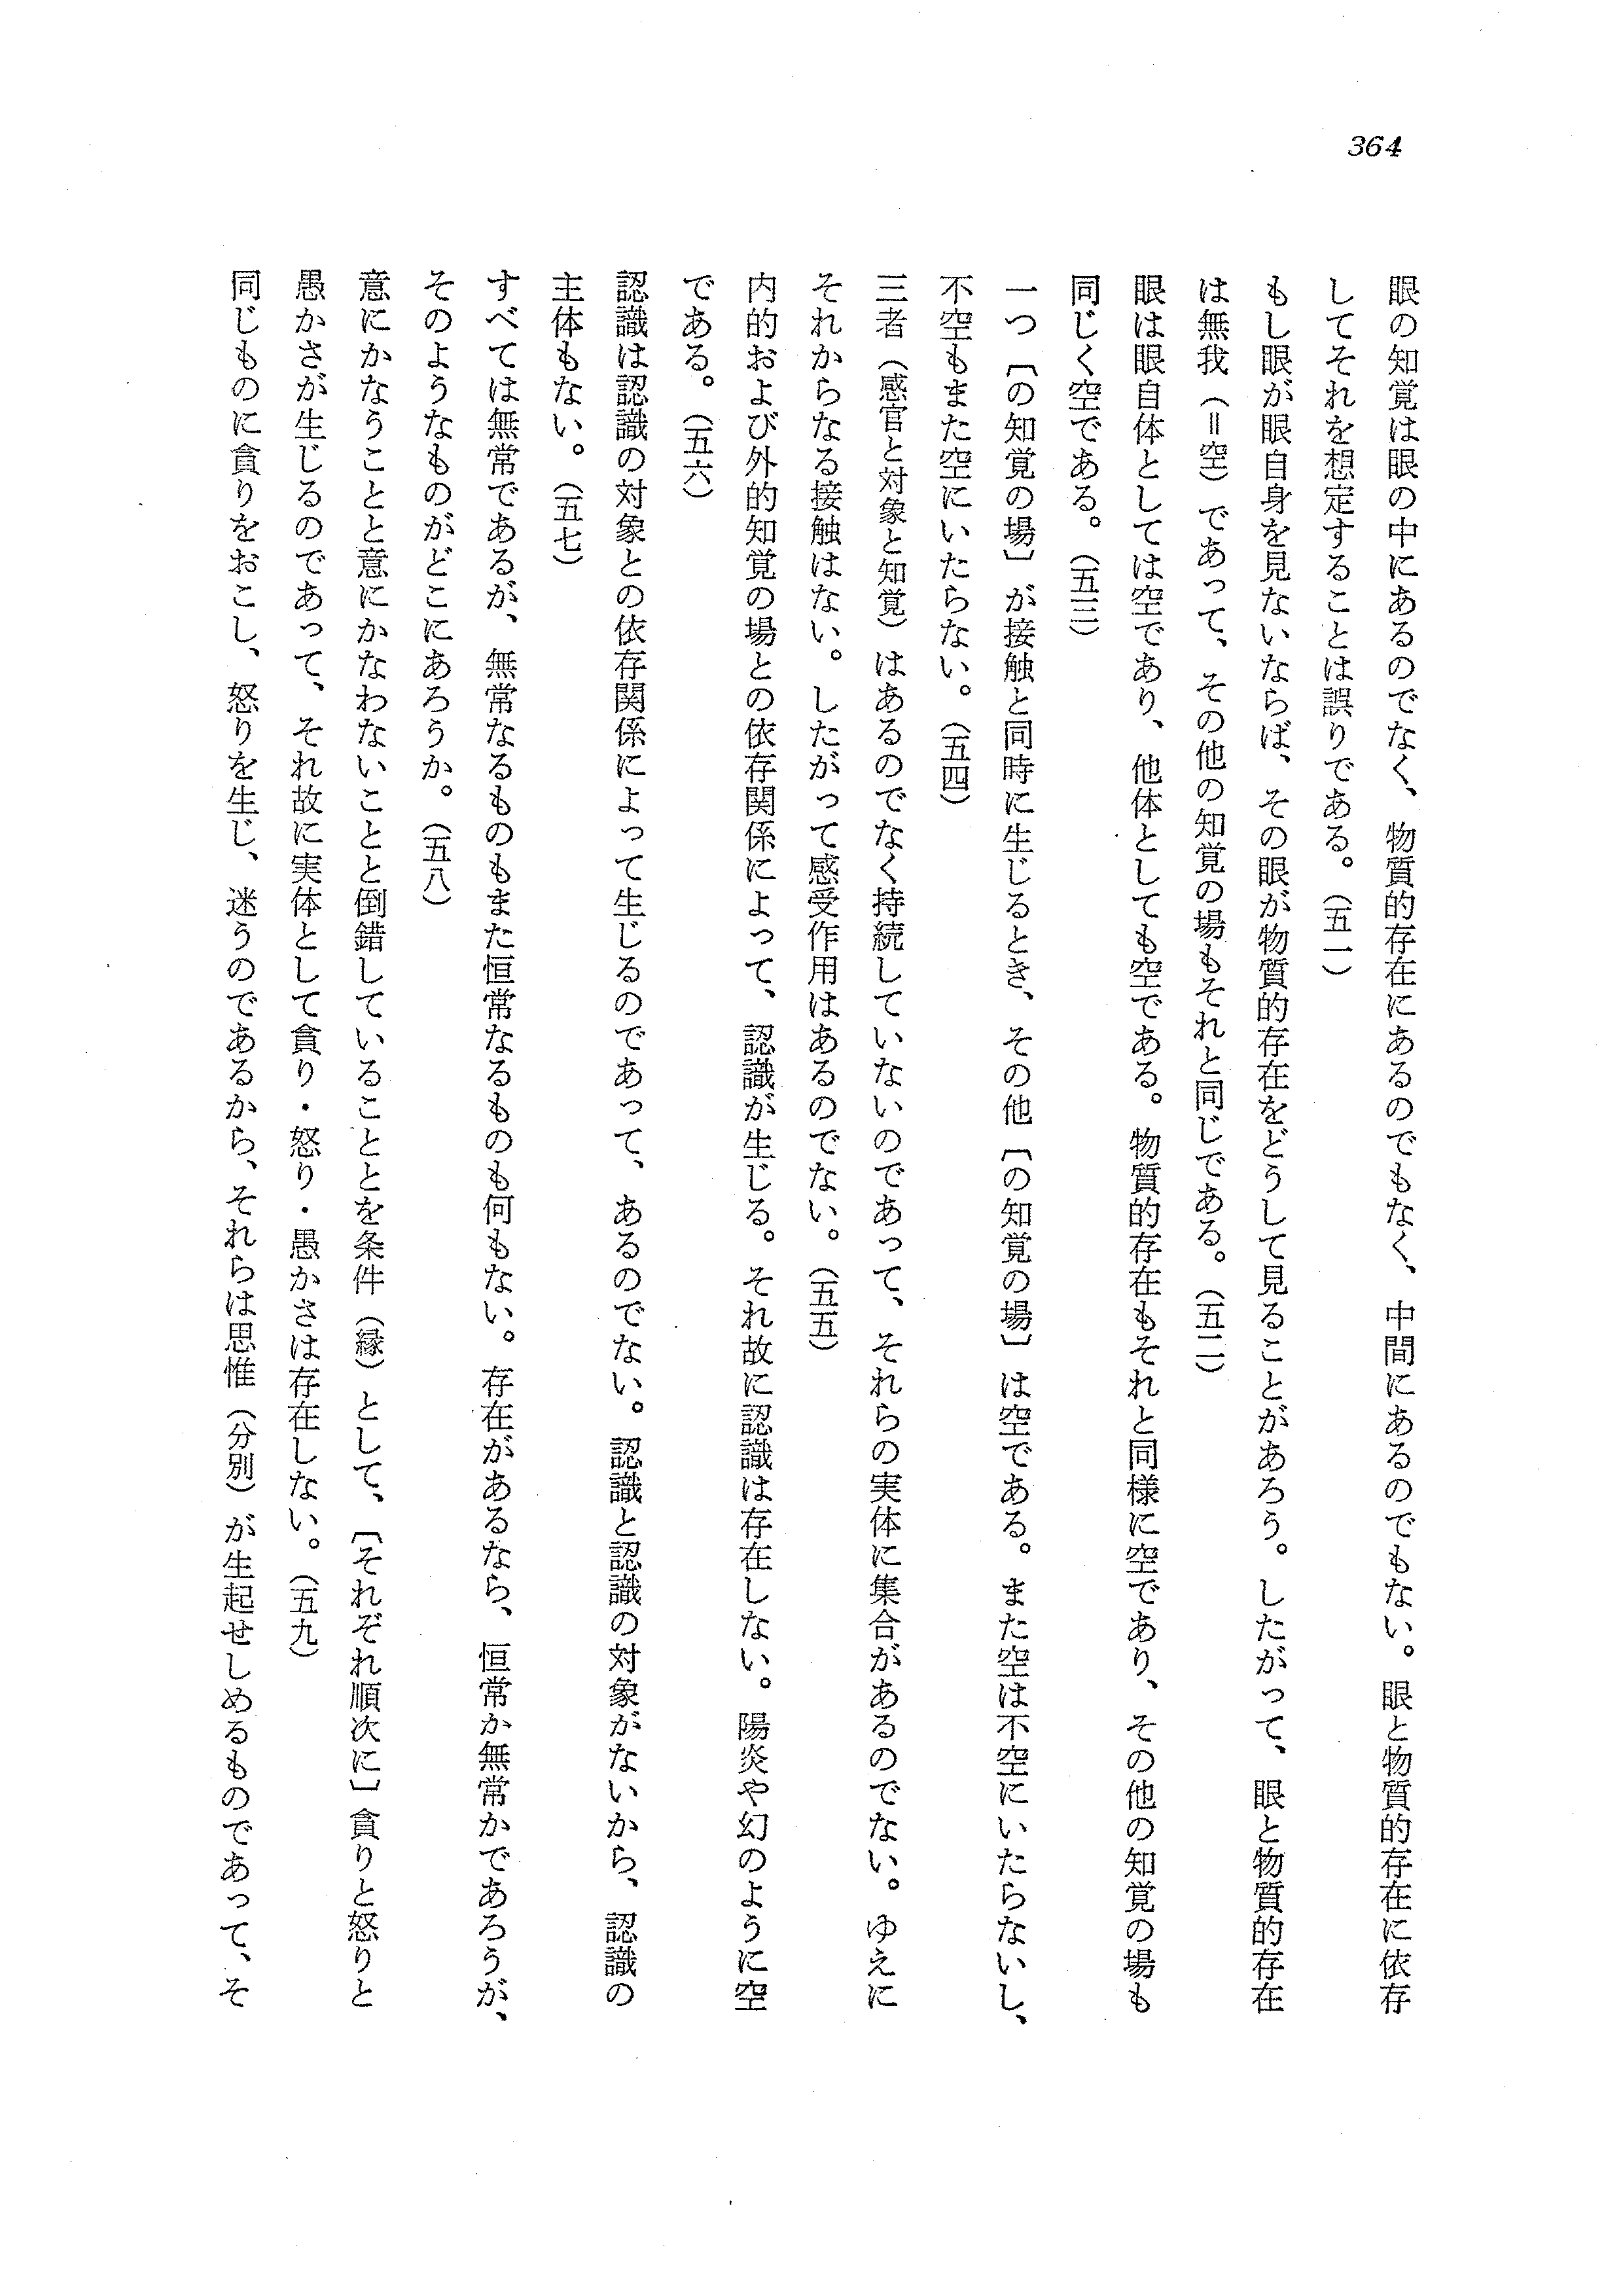 364
眼の知覚は眼の中にあるのでなく、物質的存在にあるのでもなく、中間にあるのでもない。眼と物質的存在に依存
してそれを想定することは誤りである。（五一）
もし眼が眼自身を見ないならば、その眼が物質的存在をどうして見ることがあろう。したがって、眼と物質的存在
は無我（＝空）であって、その他の知覚の場もそれと同じである。（五二）
眼は眼自体としては空であり、他体としても空である。物質的存在もそれと同様に空であり、その他の知覚の場も
同じく空である。（五三）
一つ〔の知覚の場〕が接触と同時に生じるとき、その他〔の知覚の場〕は空である。また空は不空にいたらないし、
不空もまた空にいたらない。（五四）
三者（感官と対象と知覚）はあるのでなく持続していないのであって、それらの実体に集合があるのでない。ゆえに
それからなる接触はない。したがって感受作用はあるのでない。（五五）
内的および外的知覚の場との依存関係によって、認識が生じる。それ故に認識は存在しない。陽炎や幻のように空
である。（五六）
認識は認識の対象との依存関係によって生じるのであって、あるのでない。認識と認識の対象がないから、認識の
主体もない。（五七）
すべては無常であるが、無常なるものもまた恒常なるものも何もない。存在があるなら、恒常か無常かであろうが、
そのようなものがどこにあろうか。（五八）
意にかなうことと意にかなわないことと倒錯していることとを条件（縁）として、〔それぞれ順次に〕貪りと怒りと
愚かさが生じるのであって、それ故に実体として貪り・怒り・愚かさは存在しない。（五九）
同じものに貪りをおこし、怒りを生じ、迷うのであるから、それらは思惟（分別）が生起せしめるものであって、そ